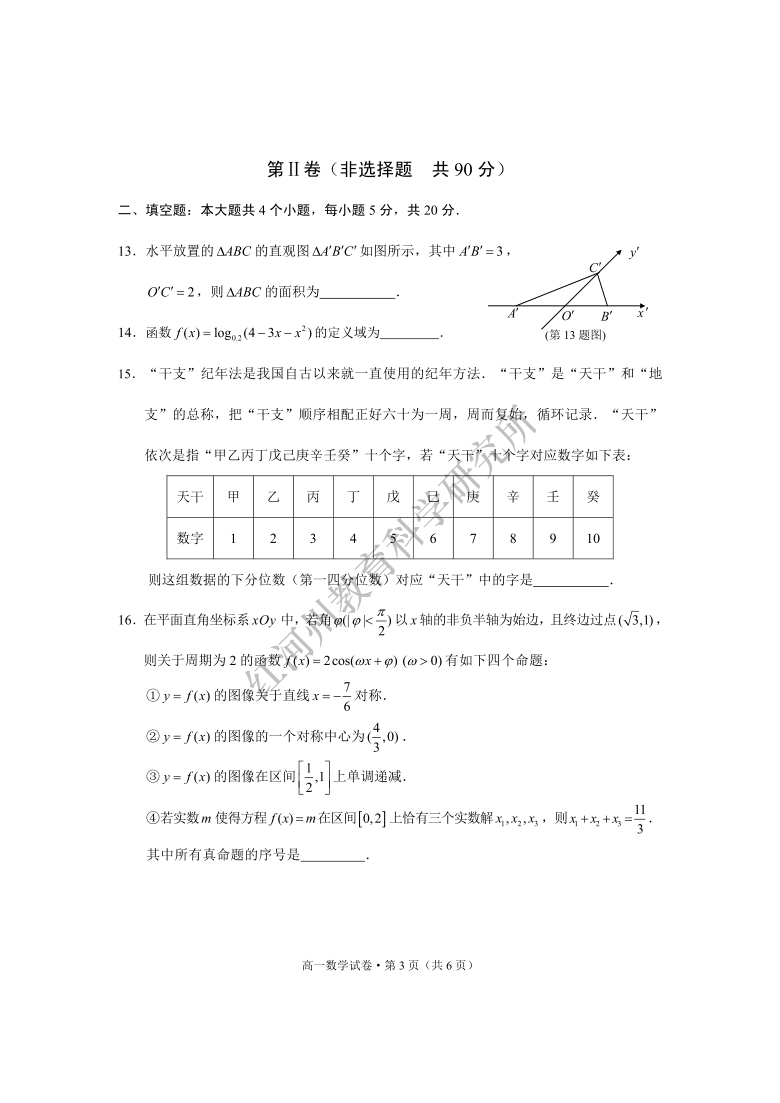 第Ⅱ卷（非选择题 共 90 分）
二、填空题：本大题共 4 个小题，每小题 5 分，共 20 分．
13．水平放置的 ΔABC 的直观图 ΔA′B′C′ 如图所示，其中 A′B′ = 3，
O′C′ = 2，则 ΔABC 的面积为__________．
y′
C′
A′ O′ B′ x′
(第 13 题图)
14．函数 f(x) = log₀.₂(4 − 3x − x²) 的定义域为________．
15．“干支”纪年法是我国自古以来就一直使用的纪年方法．“干支”是“天干”和“地
支”的总称，把“干支”顺序相配正好六十为一周，周而复始，循环记录．“天干”
依次是指“甲乙丙丁戊己庚辛壬癸”十个字，若“天干”十个字对应数字如下表：
天干 甲 乙 丙 丁 戊 己 庚 辛 壬 癸
数字 1 2 3 4 5 6 7 8 9 10
则这组数据的下分位数（第一四分位数）对应“天干”中的字是__________．
16．在平面直角坐标系 xOy 中，若角 φ(|φ| < π/2) 以 x 轴的非负半轴为始边，且终边过点 (√3,1)，
则关于周期为 2 的函数 f(x) = 2cos(ωx + φ) (ω > 0) 有如下四个命题：
① y = f(x) 的图像关于直线 x = −7/6 对称．
② y = f(x) 的图像的一个对称中心为 (4/3,0)．
③ y = f(x) 的图像在区间 [1/2,1] 上单调递减．
④若实数 m 使得方程 f(x) = m 在区间 [0,2] 上恰有三个实数解 x₁,x₂,x₃，则 x₁ + x₂ + x₃ = 11/3．
其中所有真命题的序号是_________．
高一数学试卷·第 3 页（共 6 页）
红河州教育科学研究所